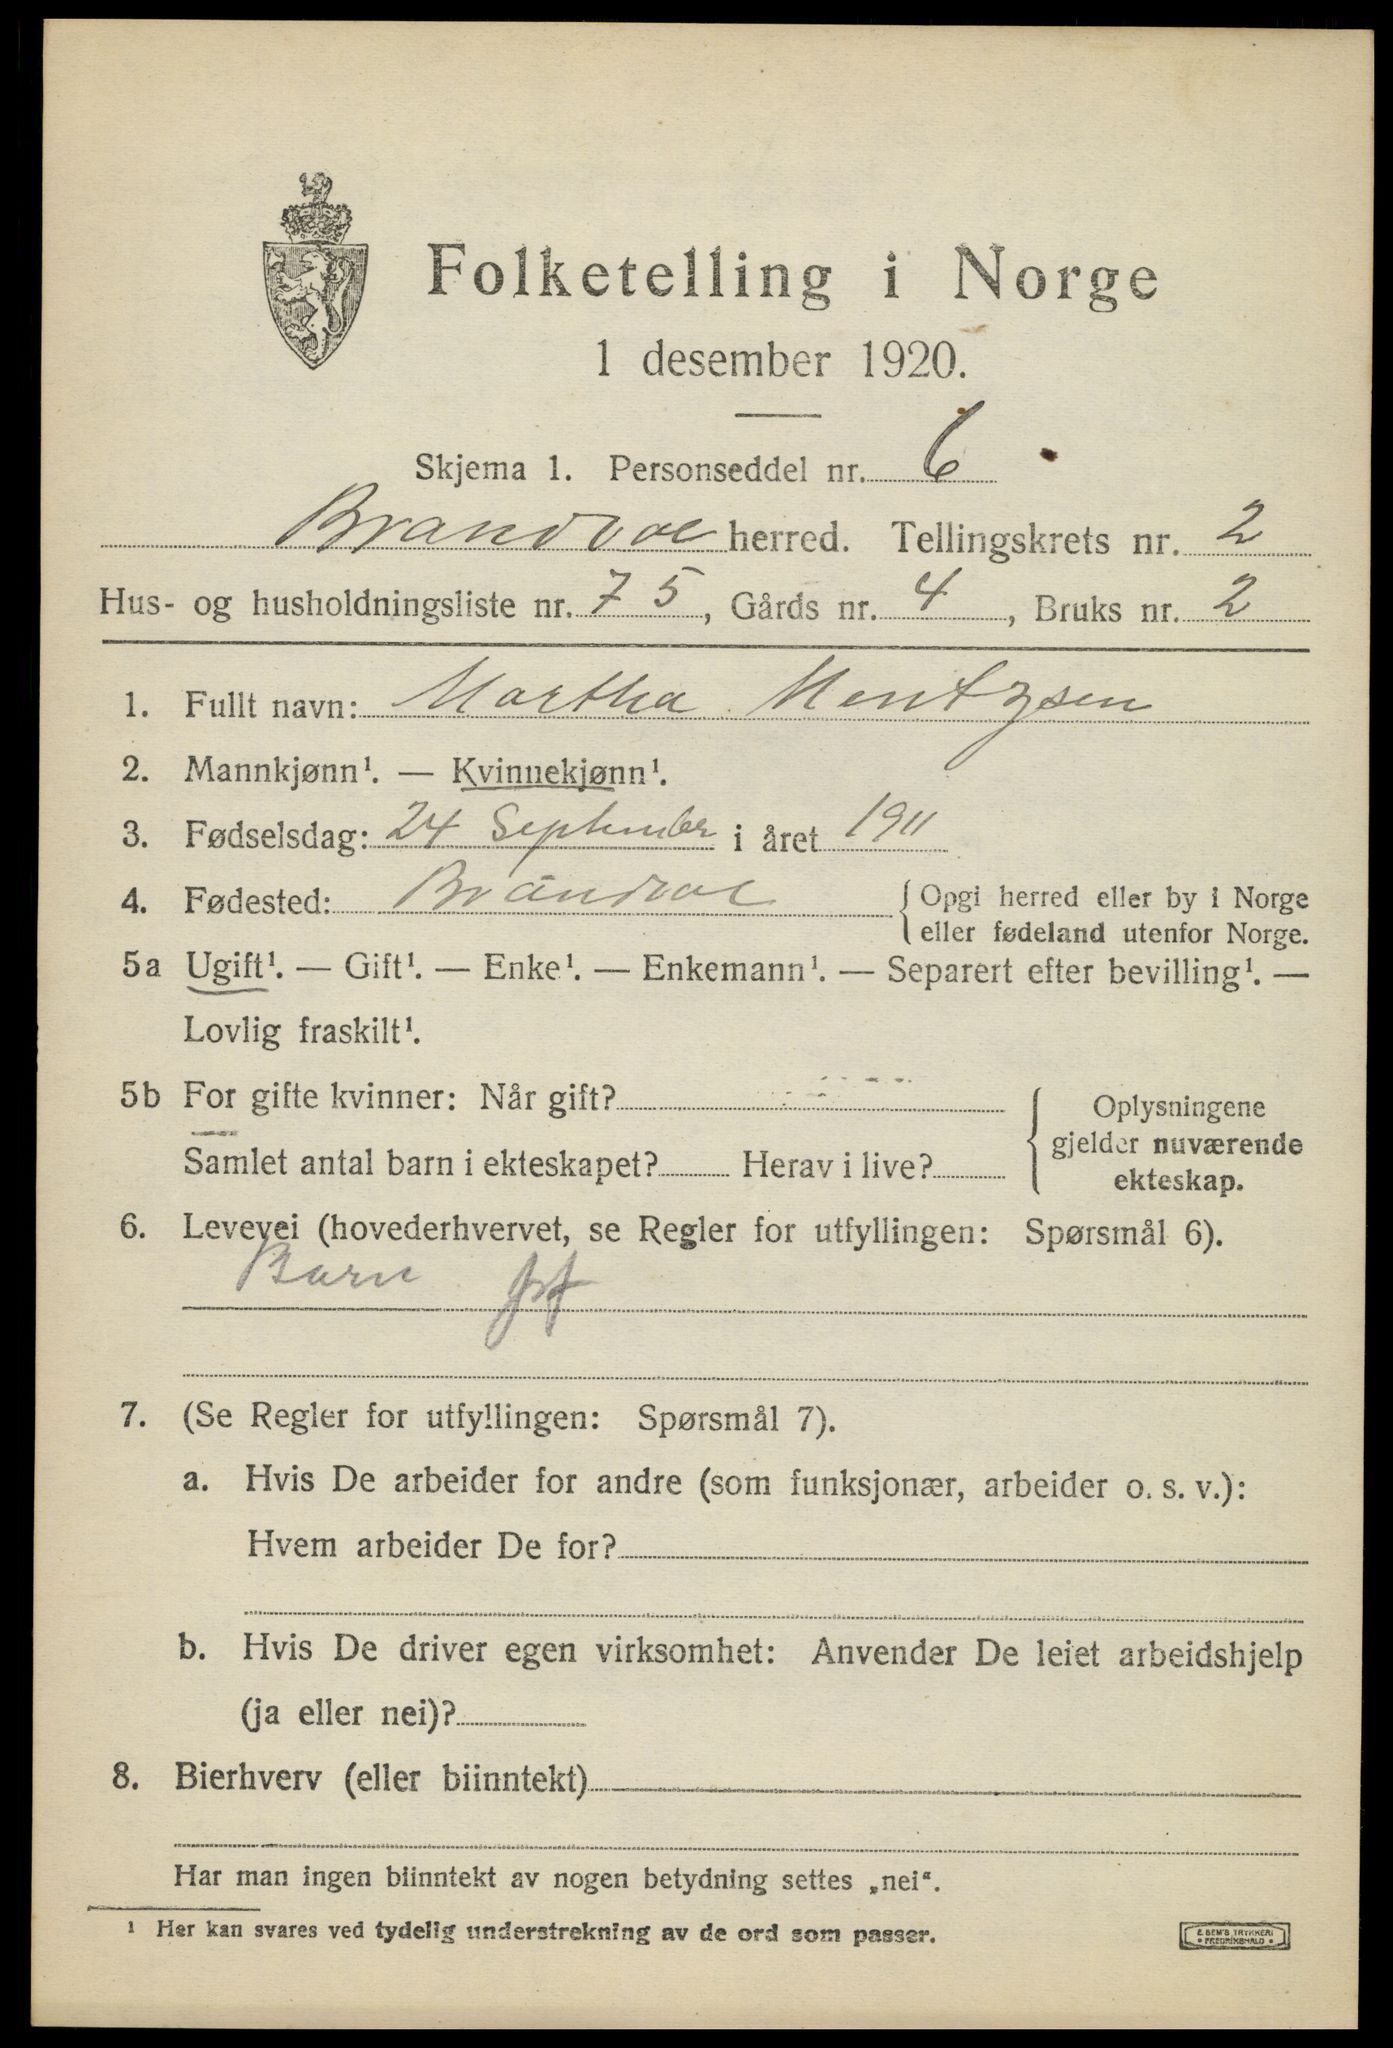 Folketelling i Norge
1 desember 1920.
Skjema 1. Personseddel nr. 6
Brandval herred. Tellingskrets nr. 2
Hus- og husholdningsliste nr. 75, Gårds nr. 4, Bruks nr. 2
1. Fullt navn: Martha Mentzsen
2. Mannkjønn¹. — Kvinnekjønn¹.
3. Fødselsdag: 24 September i året 1911
4. Fødested: Brandval { Opgi herred eller by i Norge
eller fødeland utenfor Norge.
5a Ugift¹. — Gift¹. — Enke¹. — Enkemann¹. — Separert efter bevilling¹. —
Lovlig fraskilt¹.
5b For gifte kvinner: Når gift?
Samlet antal barn i ekteskapet? Herav i live?
Oplysningene
gjelder nuværende
ekteskap.
6. Levevei (hovederhvervet, se Regler for utfyllingen: Spørsmål 6).
Barn
7. (Se Regler for utfyllingen: Spørsmål 7).
a. Hvis De arbeider for andre (som funksjonær, arbeider o. s. v.):
Hvem arbeider De for?
b. Hvis De driver egen virksomhet: Anvender De leiet arbeidshjelp
(ja eller nei)?
8. Bierhverv (eller biinntekt)
Har man ingen biinntekt av nogen betydning settes „nei“.
¹ Her kan svares ved tydelig understrekning av de ord som passer.
E. SEM'S TRYKKERI
• FREDRIKSHALD •